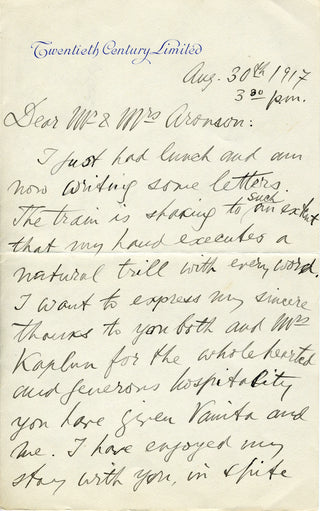 Twentieth Century Limited
Aug. 30th 1917
3 30 p.m.
Dear Mr & Mrs Aronson:
I just had lunch and am
now writing some letters.
The train is shaking to such an extent
that my hand executes a
natural trill with every word.
I want to express my sincere
thanks to you both and Mrs
Kaplun for the wholehearted
and generous hospitality
you have given Vanita and
me. I have enjoyed my
stay with you, in spite